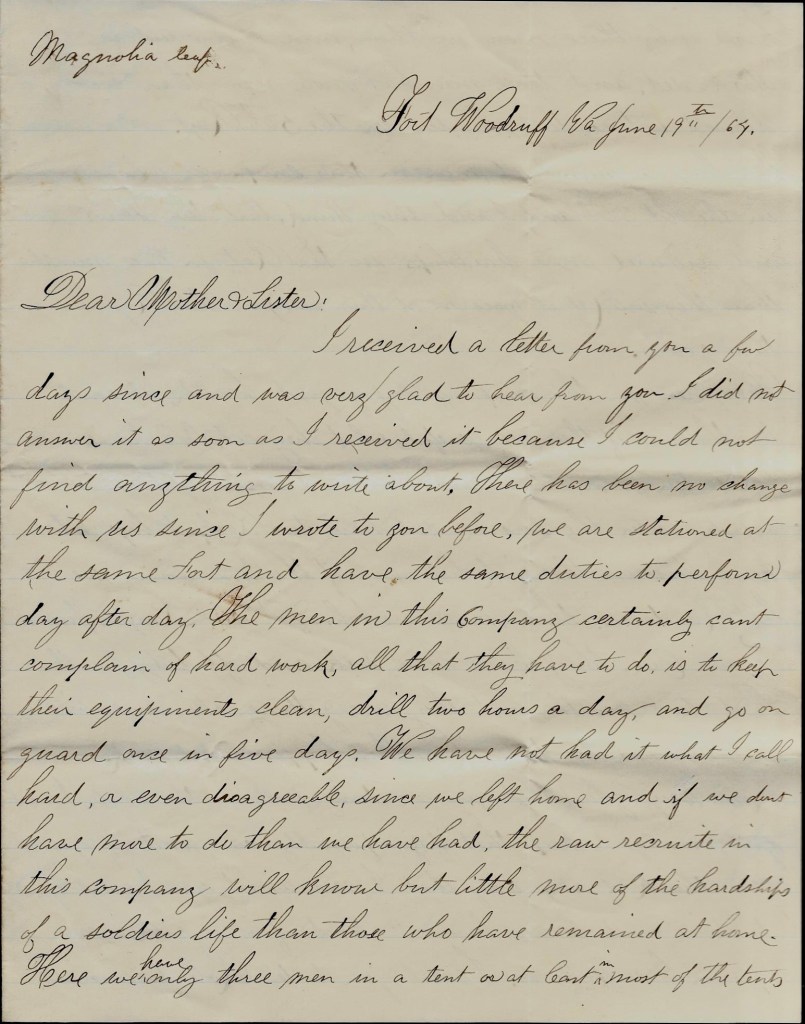 Magnolia leaf.
Fort Woodruff Va June 19th /64.
Dear Mother & Sister:
I received a letter from you a few
days since and was very glad to hear from you. I did not
answer it as soon as I received it because I could not
find anything to write about. There has been no change
with us since I wrote to you before, we are stationed at
the same Fort and have the same duties to perform
day after day. The men in this Company certainly cant
complain of hard work, all that they have to do, is to keep
their equipments clean, drill two hours a day, and go on
guard once in five days. We have not had it what I call
hard, or even disagreeable, since we left home and if we dont
have more to do than we have had, the raw recruits in
this company will know but little more of the hardships
of a soldiers life than those who have remained at home.
Here we have only three men in a tent or at least in most of the tents